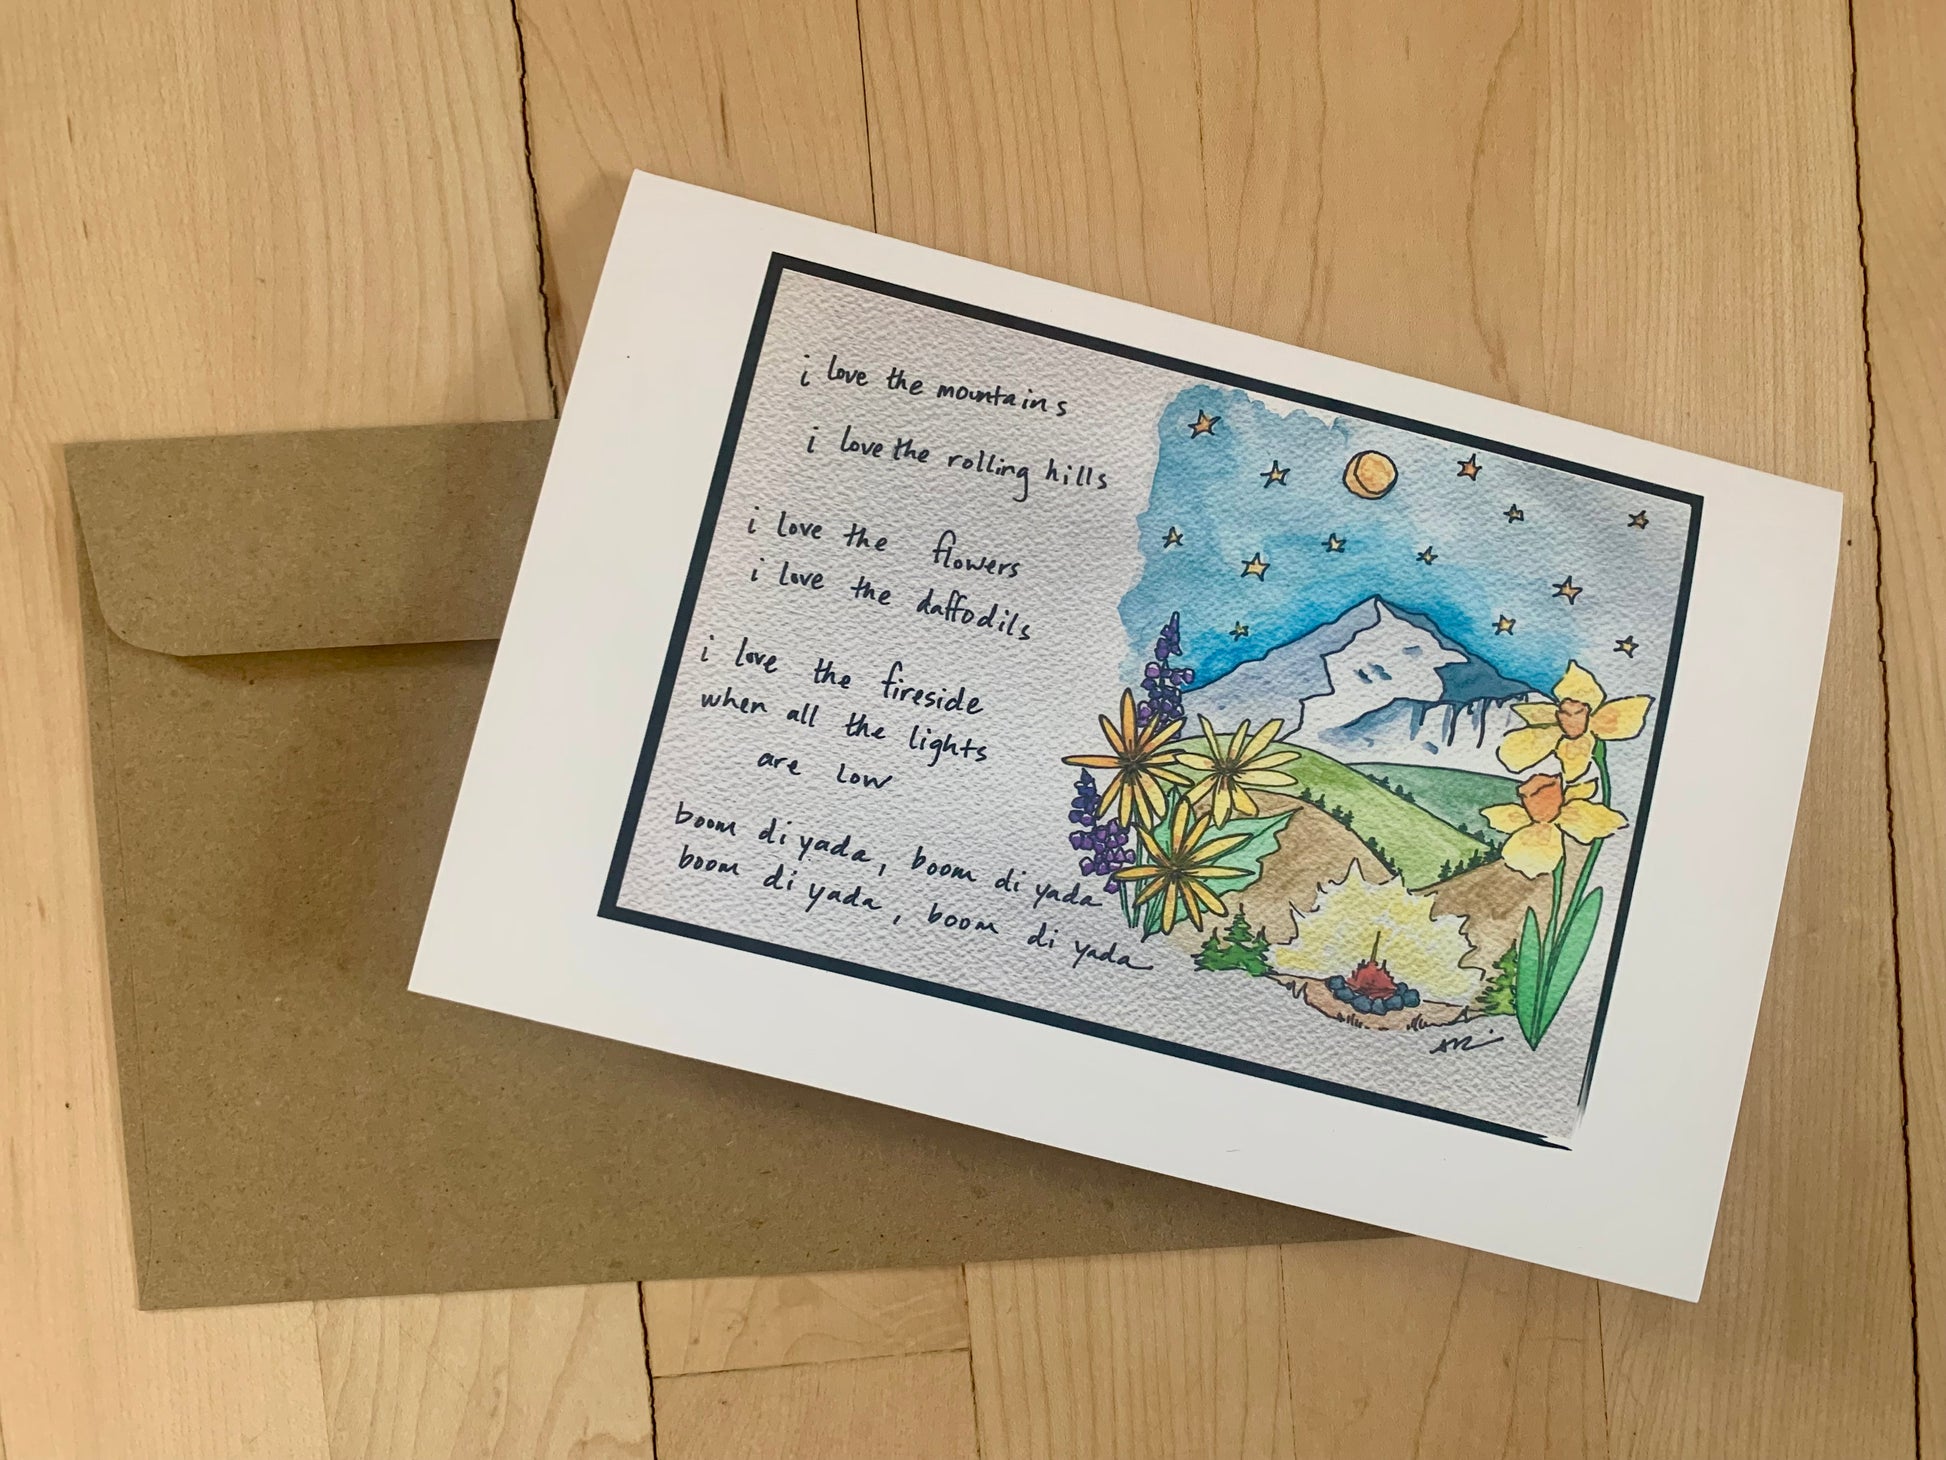 i love the mountains
i love the rolling hills
i love the flowers
i love the daffodils
i love the fireside
when all the lights
are low
boom di yada, boom di yada
boom di yada, boom di yada